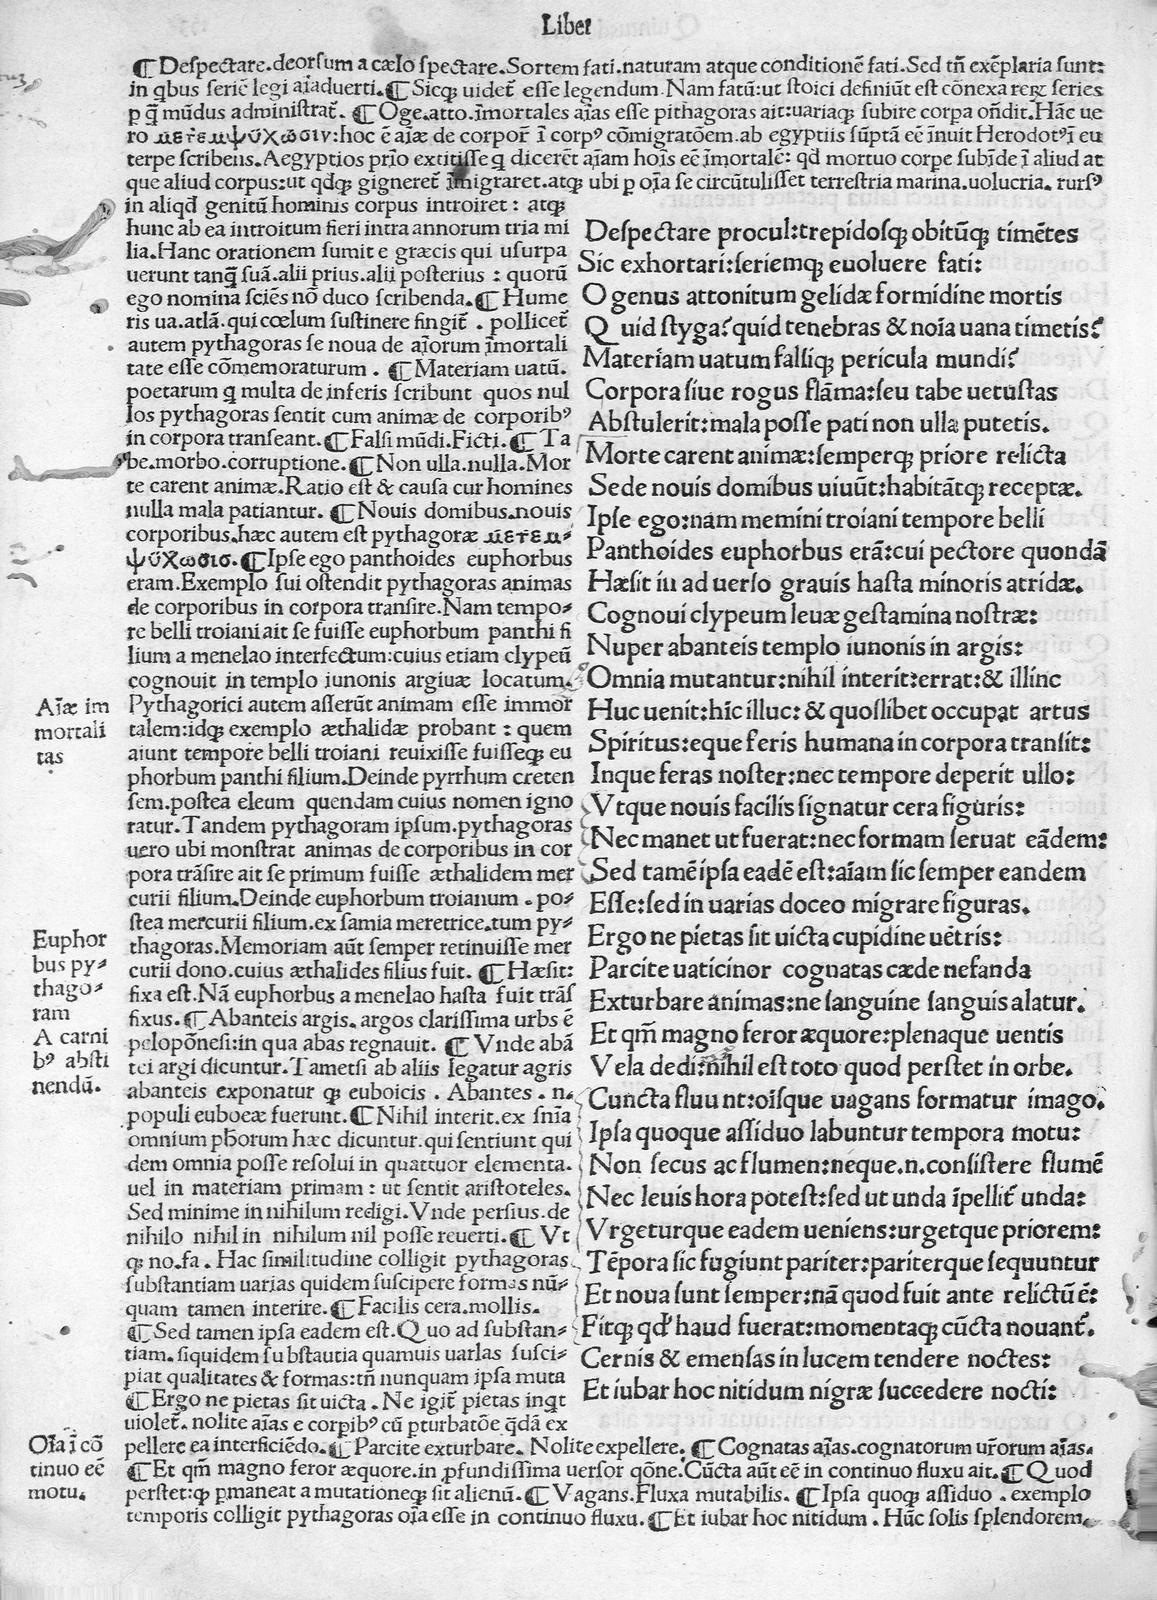 Liber
¶Despectare.deorsum a cælo spectare.Sortem fati.naturam atque conditionē fati.Sed tñ exēplaria sunt:
in qbus seriē legi aīaduerti.¶Sicq; uidet̄ esse legendum.Nam fatū:ut stoici definiūt est cōnexa reꝝ series
p q̄ mūdus administrat̄. ¶Oge.atto.īmortales aīas esse pithagoras ait:uariaq; subire corpa oñdit.Hāc ue
ro μετεμψύχωσιν:hoc ē aīæ de corpor̄ ī corpꝰ cōmigratōem.ab egyptiis sūptā eē īnuit Herodotꝰ,ī eu
terpe scribens.Aegyptios prīo extitisse q dicerēt aīam hoīs eē īmortalē: qd̄ mortuo corpe subīde ī aliud at
que aliud corpus:ut qdq; gigneret̄ īmigraret.atq; ubi p oīa se circūtulisset terrestria marina.uolucria. rursꝰ
in aliqd̄ genitū hominis corpus introiret : atq;
hunc ab ea introitum fieri intra annorum tria mi
lia.Hanc orationem sumit e græcis qui usurpa
uerunt tanq̄ suā.alii prius.alii posterius : quorū
ego nomina sciēs nō duco scribenda.¶Hume
ris ua.atlā.qui cœlum sustinere fingit̄ . pollicet̄
autem pythagoras se noua de aīorum īmortali
tate esse cōmemoraturum . ¶Materiam uatū.
poetarum q multa de inferis scribunt quos nul
los pythagoras sentit cum animæ de corporibꝰ
in corpora transeant.¶Falsi mūdi.Ficti.¶Ta
be.morbo.corruptione.¶Non ulla.nulla.Mor
te carent animæ.Ratio est & causa cur homines
nulla mala patiantur. ¶Nouis domibus.nouis
corporibus.hæc autem est pythagoræ μετεμ-
ψύχωσισ.¶Ipse ego panthoides euphorbus
eram.Exemplo sui ostendit pythagoras animas
de corporibus in corpora transire.Nam tempo-
re belli troiani ait se fuisse euphorbum panthi fi
lium a menelao interfectum:cuius etiam clypeū
cognouit in templo iunonis argiuæ locatum.
Pythagorici autem asserūt animam esse immor
talem:idq; exemplo æthalidæ probant : quem
aiunt tempore belli troiani reuixisse fuisseq; eu
phorbum panthi filium.Deinde pyrrhum creten
sem.postea eleum quendam cuius nomen igno
ratur.Tandem pythagoram ipsum.pythagoras
uero ubi monstrat animas de corporibus in cor
pora trāsire ait se primum fuisse æthalidem mer
curii filium.Deinde euphorbum troianum . po-
stea mercurii filium.ex samia meretrice.tum py-
thagoras.Memoriam aūt semper retinuisse mer
curii dono.cuius æthalides filius fuit. ¶Hæsit:
fixa est.Nā euphorbus a menelao hasta fuit trāsf
fixus.¶Abanteis argis. argos clarissima urbs ē
pelopōnesi:in qua abas regnauit. ¶ Vnde abā
tei argi dicuntur.Tametsi ab aliis legatur agris
abanteis exponatur q; euboicis . Abantes . n.
populi euboeæ fuerunt.¶Nihil interit.ex snīa
omnium phorum hæc dicuntur.qui sentiunt qui
dem omnia posse resolui in quattuor elementa.
uel in materiam primam : ut sentit aristoteles.
Sed minime in nihilum redigi.Vnde persius.de
nihilo nihil in nihilum nil posse reuerti.¶ Vt
q; no.fa . Hac similitudine colligit pythagoras
substantiam uarias quidem suscipere formas nū-
quam tamen interire.¶Facilis cera.mollis.
¶Sed tamen ipsa eadem est.Quo ad substan-
tiam. siquidem substautia quamuis uarlas susci-
piat qualitates & formas:tñ nunquam ipsa muta
¶Ergo ne pietas sit uicta . Ne igit̄ pietas inqt
uiolet̄. nolite aīas e corpibꝰ cū pturbatōe q̄dā ex
pellere ea interficiēdo.¶Parcite exturbare. Nolite expellere. ¶Cognatas aīas.cognatorum ur̄orum aīas.
¶Et qm̄ magno feror æquore.in ꝓfundissima uersor qōne.Cūcta aūt eē in continuo fluxu ait.¶Quod
perstet:q; pmaneat a mutationeq; sit alienū.¶Vagans.Fluxa mutabilis. ¶Ipsa quoq; assiduo . exemplo
temporis colligit pythagoras oīa esse in continuo fluxu.¶Et iubar hoc nitidum . Hūc solis splendorem.
Despectare procul:trepidosq; obitūq; timētes
Sic exhortari:seriemq; euoluere fati:
O genus attonitum gelidæ formidine mortis
Quid styga?quid tenebras & noīa uana timetis?
Materiam uatum falsiq; pericula mundi?
Corpora siue rogus flāma:seu tabe uetustas
Abstulerit:mala posse pati non ulla putetis.
Morte carent animæ:semperq; priore relicta
Sede nouis domibus uiuūt:habitātq; receptæ.
Ipse ego:nam memini troiani tempore belli
Panthoides euphorbus erā:cui pectore quondā
Hæsit in aduerso grauis hasta minoris atridæ.
Cognoui clypeum leuæ gestamina nostræ:
Nuper abanteis templo iunonis in argis:
Omnia mutantur:nihil interit:errat:& illinc
Huc uenit:hīc illuc: & quoslibet occupat artus
Spiritus:eque feris humana in corpora transit:
Inque feras noster:nec tempore deperit ullo:
Vtque nouis facilis signatur cera figuris:
Nec manet ut fuerat:nec formam seruat eādem:
Sed tamē ipsa eadē est:aīam sic semper eandem
Esse:sed in uarias doceo migrare figuras.
Ergo ne pietas sit uicta cupidine uētris:
Parcite uaticinor cognatas cæde nefanda
Exturbare animas:ne sanguine sanguis alatur.
Et qm̄ magno feror æquore:plenaque uentis
Vela dedi:nihil est toto quod perstet in orbe.
Cuncta fluunt:oīsque uagans formatur imago.
Ipsa quoque assiduo labuntur tempora motu:
Non secus ac flumen:neque.n.consistere flumē
Nec leuis hora potest:sed ut unda īpellit̄ unda:
Vrgeturque eadem ueniens:urgetque priorem:
Tēpora sic fugiunt pariter:pariterque sequuntur
Et noua sunt semper:nā quod fuit ante relictū ē:
Fitq; qd̄ haud fuerat:momentaq; cūcta nouant̄.
Cernis & emensas in lucem tendere noctes:
Et iubar hoc nitidum nigræ succedere nocti:
Aīæ im
mortali
tas
Euphor
bus py-
thago-
ram
A carni
bꝰ absti
nendū.
Oīa ī cō
tinuo eē
motu.